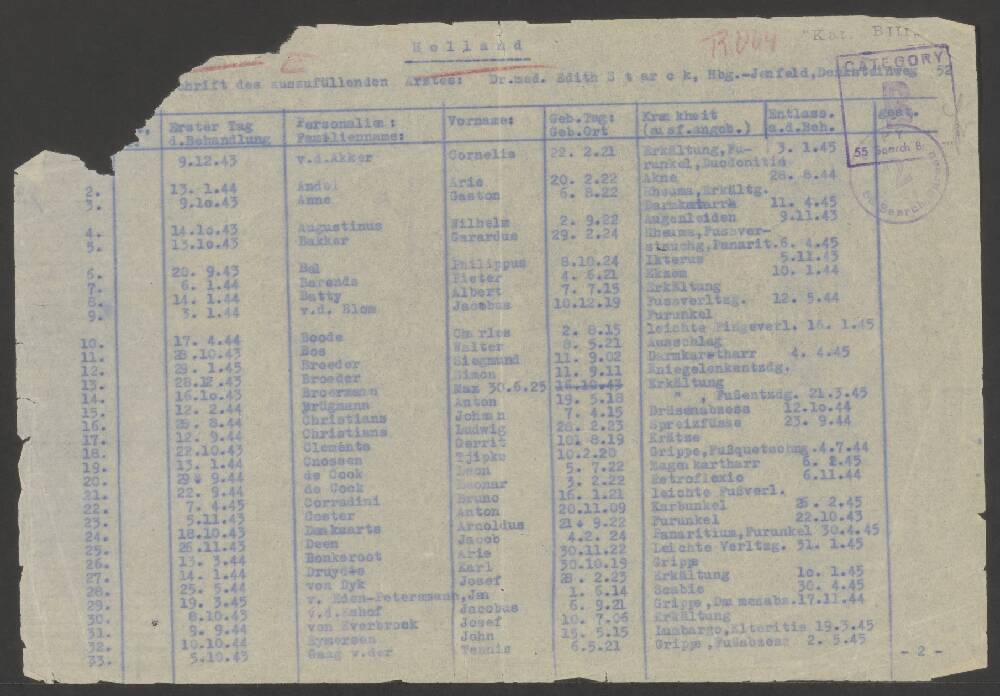 Holland
"Kat. BIII
chrift des auszufüllenden Arztes: Dr.med. Edith S t a r c k, Hbg.-Jenfeld, Denksteinweg 52
CATEGORY
55 Search B
Erster Tag d.Behandlung Personalien: Familienname: Vorname: Geb.Tag: Geb.Ort Krankheit (ausf.angeb.) Entlass. a.d.Beh. gest.
9.12.43 v.d.Akker Cornelis 22. 2.21 Erkältung,Fu- 3. 1.45
runkel,Duodenitis
2. 13. 1.44 Andel Arie 20. 2.22 Akne 28. 8.44
3. 9.10.43 Anne Gaston 6. 8.22 Rheuma,Erkältg.
Darmkatarrh 11. 4.45
4. 14.10.43 Augustinus Wilhelm 2. 9.22 Augenleiden 9.11.43
5. 13.10.43 Bakker Gerardus 29. 2.24 Rheuma,Fussver-
stauchg,Panarit. 6. 4.45
6. 20. 9.43 Bal Philippus 8.10.24 Ikterus 5.11.43
7. 6. 1.44 Barends Pieter 4. 6.21 Ekzem 10. 1.44
8. 14. 1.44 Batty Albert 7. 7.15 Erkältung
9. 3. 1.44 v.d. Blom Jacobus 10.12.19 Fussverltzg. 12. 5.44
Furunkel
10. 17. 4.44 Boode Charles 2. 8.15 leichte Fingeverl. 16. 1.45
11. 28.10.43 Bos Walter 8. 5.21 Ausschlag
12. 29. 1.45 Broeder Siegmund 11. 9.02 Darmkartharr 4. 4.45
13. 28.12.43 Broeder Simon 11. 9.11 Kniegelenkentzdg.
14. 16.10.43 Broermann Max 30.6.25 16.10.43 Erkältung
15. 12. 2.44 Brügmann Anton 19. 5.18 " , Fußentzdg. 21.3.45
16. 29. 8.44 Christians Johann 7. 4.15 Drüsenabzess 12.10.44
17. 12. 9.44 Christians Ludwig 28. 2.23 Spreizfüsse 23. 9.44
18. 22.10.43 Clements Gerrit 101 8.19 Krätze
19. 13. 1.44 Cnossen Tjipke 10.2.20 Grippe,Fußquetschng. 4.7.44
20. 29. 9.44 de Cook Leon 5. 7.22 Magenkartharr 6. 2.45
21. 22. 9.44 de Cock 3. 2.22 Retroflexio 6.11.44
22. 7. 4.45 Corradini Bruno 16. 1.21 leichte Fußverl.
23. 5.11.43 Coster Anton 20.11.09 Karbunkel 26. 2.45
24. 18.10.43 Arnoldus 21. 9.22 Furunkel 22.10.43
25. 26.11.43 Deen Jacob 4.2. 24 Panaritium,Furunkel 30.4.45
26. 13. 3.44 Donkeroot Arie 30.11.22 Leichte Verltzg. 31. 1.45
27. 14. 1.44 Druydts Karl 30.10.19 Grippe
28. 25. 5.44 von Dyk Josef 28. 2.23 Erkältung 10. 1.45
29. 19. 3.45 v. Eden-Petersmann,Jan 1. 6.14 Scabie 30. 4.45
30. 8.10.43 v.d.Enhof Jacobus 6. 9.21 Grippe,Daumenabs. 17.11.44
31. 9. 9.44 von Everbroek Josef 10. 7.06 Erkältung
32. 10.10.44 Eymersen John 15. 5.15 Lumbargo, 19.3.45
33. 5.10.43 Gaag v.der Tennis 6.5.21 Grippe,Fußabzess 2. 5.45
- 2 -